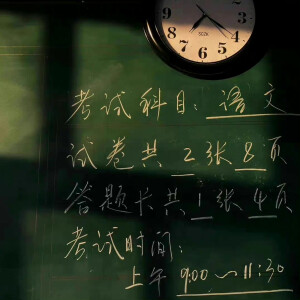 12 1 2 3 4 5 6 7 8 9
考试科目：语文
试卷共2张8页
答题卡共1张4页
考试时间：
上午 9:00～11:30